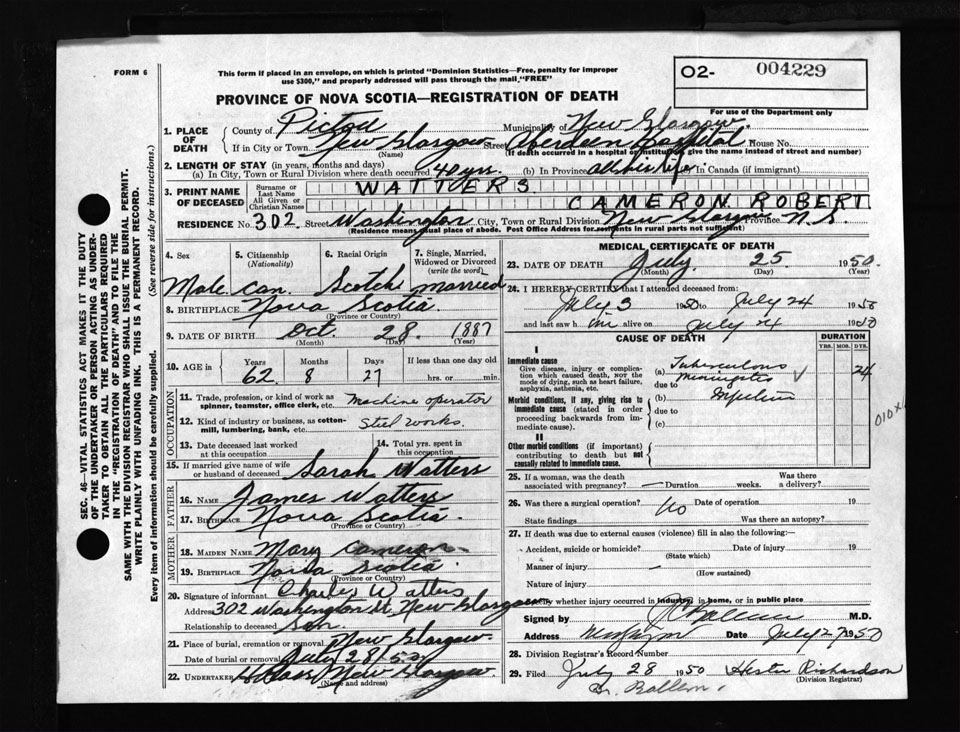 FORM 6
This form if placed in an envelope, on which is printed "Dominion Statistics—Free, penalty for improper
use $300," and properly addressed will pass through the mail, "FREE"
O2- 004229
PROVINCE OF NOVA SCOTIA—REGISTRATION OF DEATH
For use of the Department only
1. PLACE OF DEATH
County of Pictou Municipality of New Glasgow
If in City or Town New Glasgow Street Aberdeen Hospital House No.
(Name) (If death occurred in a hospital or institution, give the name instead of street and number)
2. LENGTH OF STAY (in years, months and days)
(a) In City, Town or Rural Division where death occurred 40 yrs. (b) In Province all his life (c) in Canada (if immigrant)
3. PRINT NAME OF DECEASED
Surname or Last Name WATTERS
All Given or Christian Names CAMERON ROBERT
RESIDENCE No. 302 Street Washington City, Town or Rural Division New Glasgow Province N.S.
(Residence means usual place of abode. Post Office Address for residents in rural parts not sufficient)
4. Sex
5. Citizenship (Nationality)
6. Racial Origin
7. Single, Married, Widowed or Divorced (write the word)
Male Can. Scotch married
8. BIRTHPLACE Nova Scotia
(Province or Country)
9. DATE OF BIRTH Oct. 28 1887
(Month) (Day) (Year)
10. AGE in Years Months Days If less than one day old
62 8 27 hrs. or min.
OCCUPATION
11. Trade, profession, or kind of work as spinner, teamster, office clerk, etc. machine operator
12. Kind of industry or business, as cotton-mill, lumbering, bank, etc. Steel works.
13. Date deceased last worked at this occupation
14. Total yrs. spent in this occupation
15. If married give name of wife or husband of deceased Sarah Watters
FATHER
16. Name James Watters
17. Birthplace Nova Scotia
(Province or Country)
MOTHER
18. MAIDEN NAME Mary Cameron
19. BIRTHPLACE Nova Scotia
(Province or Country)
20. Signature of informant Charles Watters
Address 302 Washington St. New Glasgow
Relationship to deceased Son
21. Place of burial, cremation or removal New Glasgow
Date of burial or removal July 28/50
22. UNDERTAKER New Glasgow
(Name and address)
MEDICAL CERTIFICATE OF DEATH
23. DATE OF DEATH July 25 1950.
(Month) (Day) (Year)
24. I HEREBY CERTIFY that I attended deceased from:
July 3 1950 to July 24 1950
and last saw him alive on July 24 1950
CAUSE OF DEATH DURATION
YRS. MOS. DYS.
I
Immediate cause
Give disease, injury or complication which caused death, NOT the mode of dying, such as heart failure, asphyxia, asthenia, etc.
(a) Tuberculous 24
due to Meningitis
Morbid conditions, if any, giving rise to immediate cause (stated in order proceeding backwards from immediate cause).
(b)
due to
(c)
010x
II
Other morbid conditions (if important) contributing to death but not causally related to immediate cause.
25. If a woman, was the death associated with pregnancy? — Duration weeks. Was there a delivery?
26. Was there a surgical operation? No Date of operation 19
State findings Was there an autopsy?
27. If death was due to external causes (violence) fill in also the following:—
Accident, suicide or homicide? Date of injury 19
(State which)
Manner of injury —
(How sustained)
Nature of injury
Specify whether injury occurred in industry, in home, or in public place
Signed by M.D.
Address Date July 27 1950
28. Division Registrar's Record Number
29. Filed July 28 1950 Hester Richardson
(Division Registrar)
SEC. 46—VITAL STATISTICS ACT MAKES IT THE DUTY
OF THE UNDERTAKER OR PERSON ACTING AS UNDER-
TAKER TO OBTAIN ALL THE PARTICULARS REQUIRED
IN THE "REGISTRATION OF DEATH" AND TO FILE THE
SAME WITH THE DIVISION REGISTRAR WHO SHALL ISSUE THE BURIAL PERMIT.
WRITE PLAINLY WITH UNFADING INK. THIS IS A PERMANENT RECORD.
Every item of information should be carefully supplied. (See reverse side for instructions.)